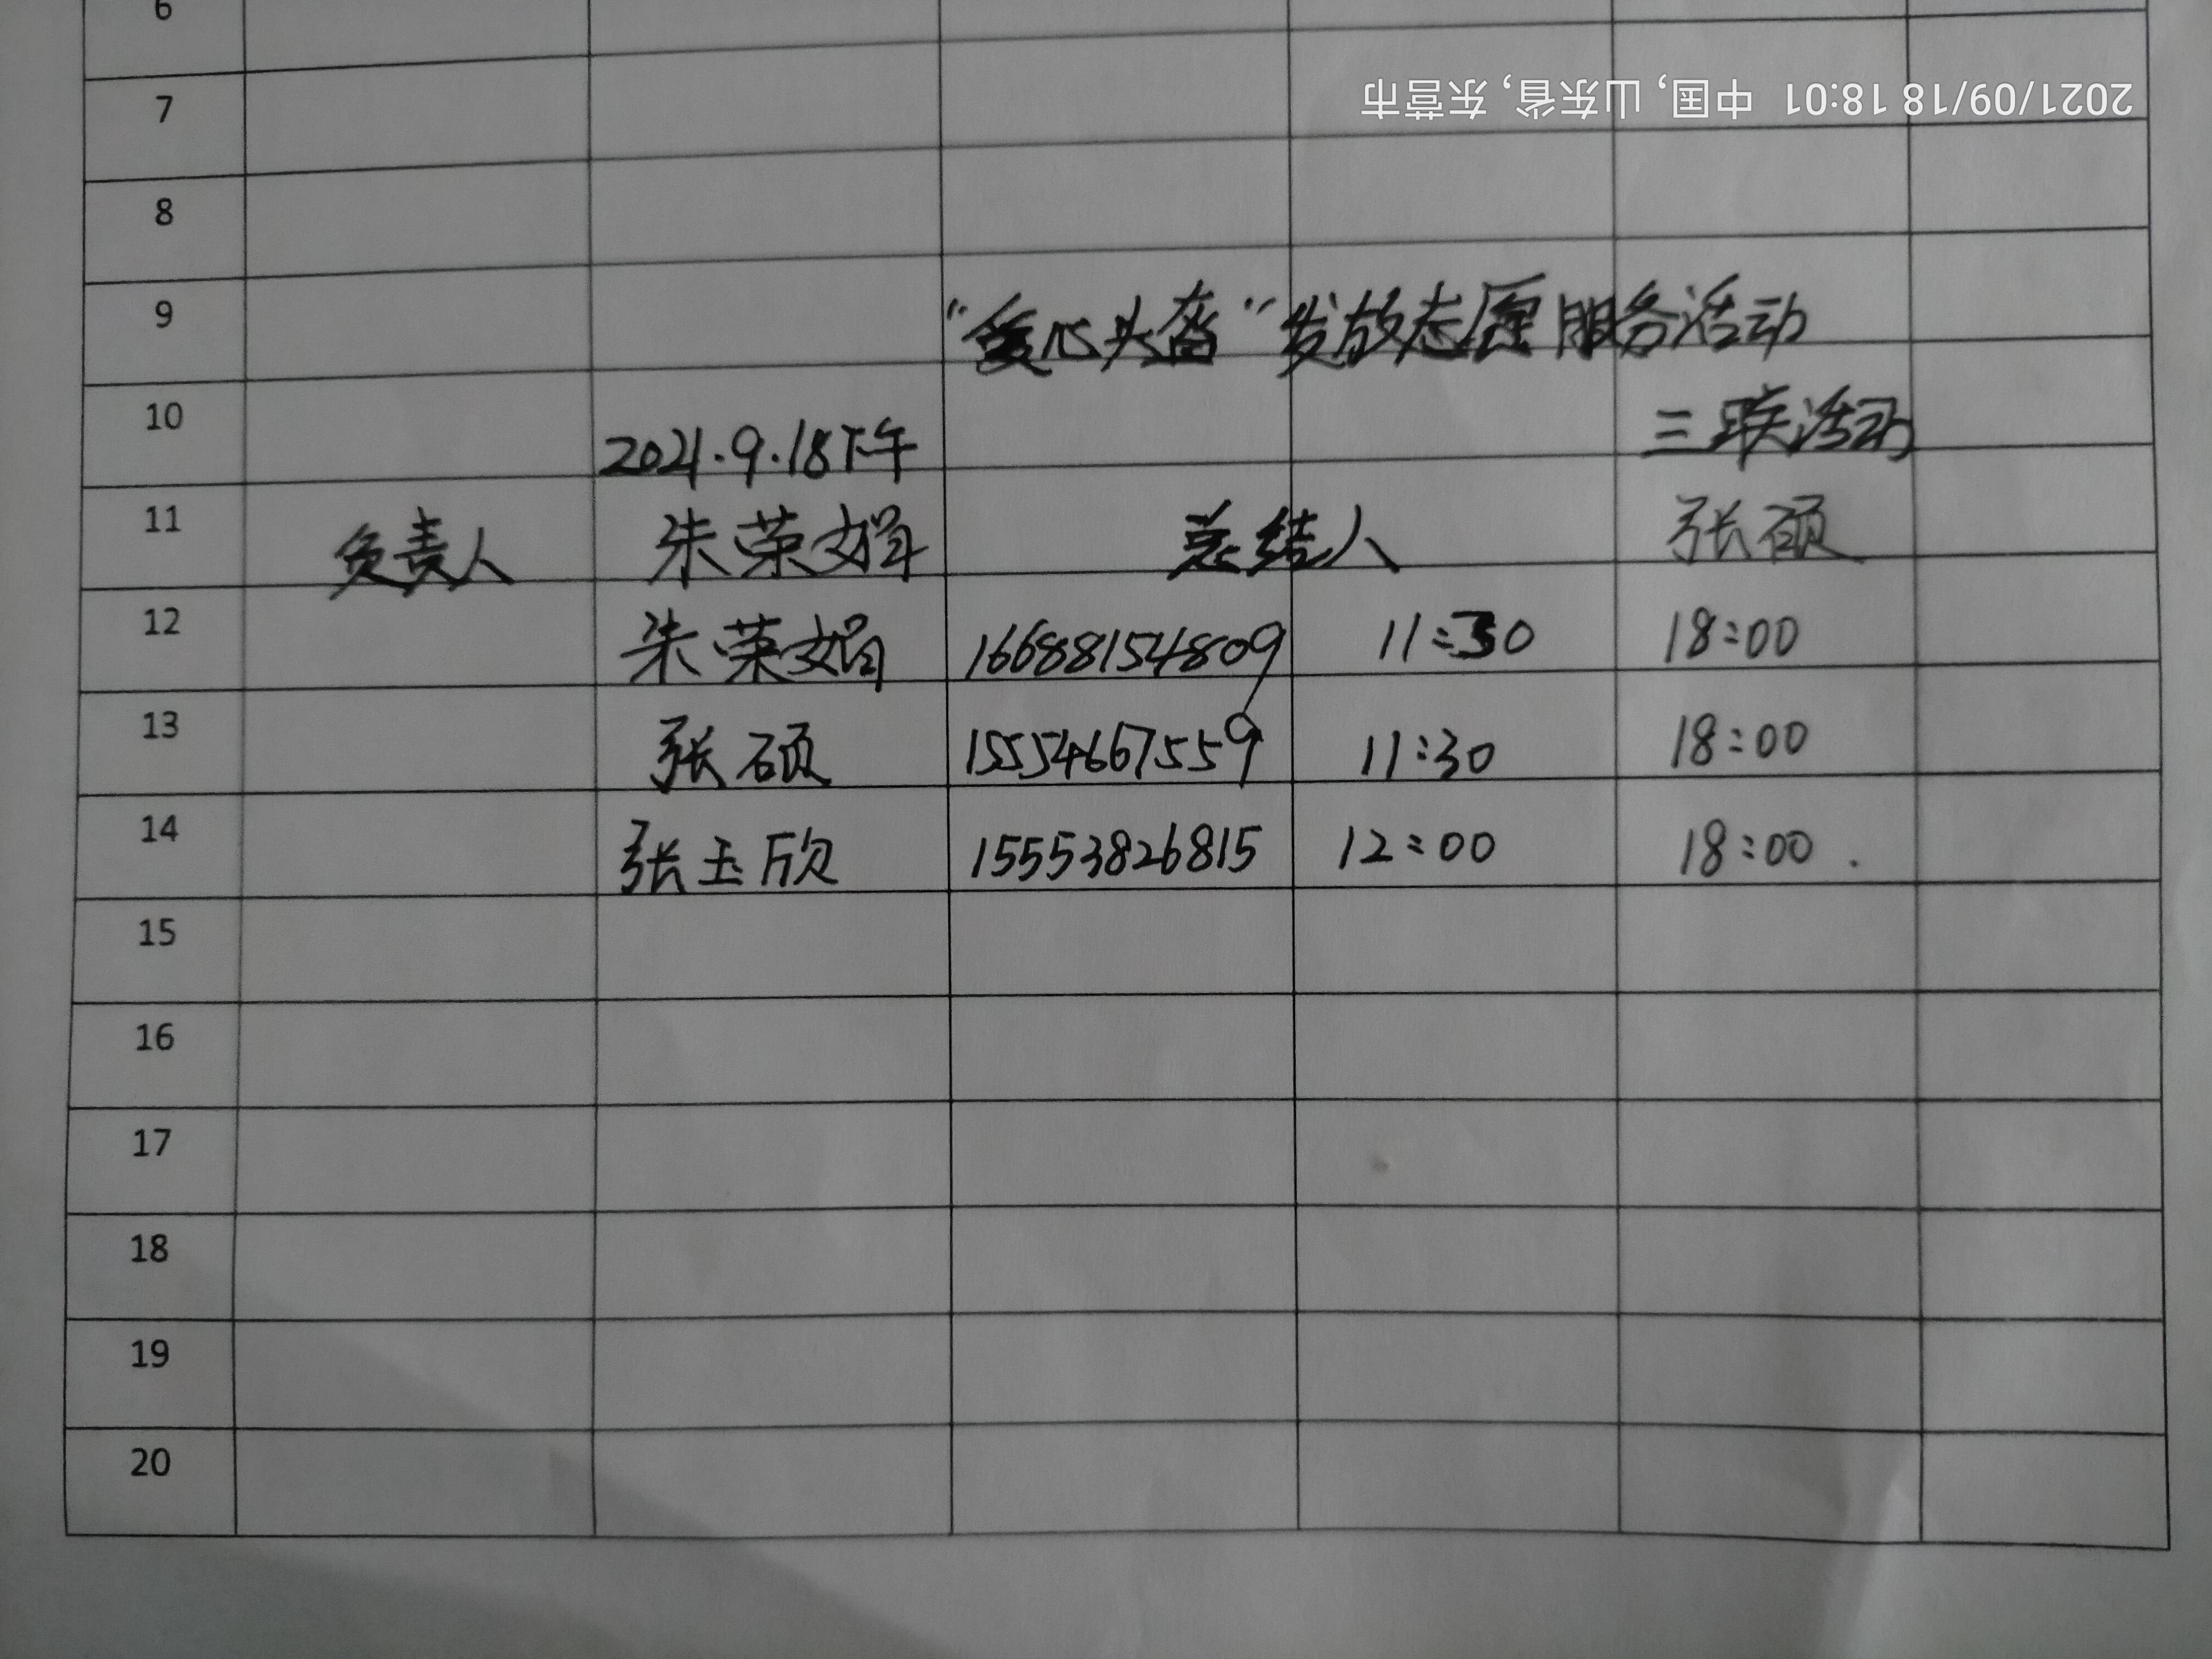 6
2021/09/18 18:01 中国, 山东省, 东营市
7
8
9 "爱心头盔"发放志愿服务活动
10 2021.9.18下午 三联活动
11 负责人 朱荣娟 总结人 张硕
12 朱荣娟 16688154809 11:30 18:00
13 张硕 15554667559 11:30 18:00
14 张玉欣 15553826815 12:00 18:00.
15
16
17
18
19
20